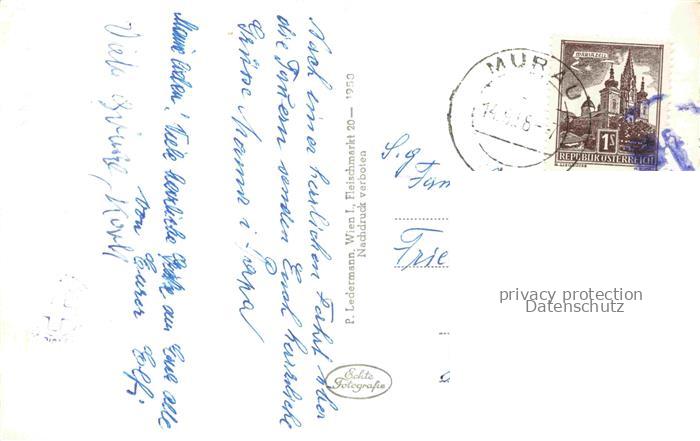 Nach einer herrlichen Fahrt über
die Tauern senden Euch herzliche
Grüsse Mama u. Papa
Meine Lieben! Viele herzliche Grüße an Euch alle
von Eurer Elfi
Viele Grüsse, Karl
P. Ledermann, Wien I., Fleischmarkt 20— 1950
Nachdruck verboten
Echte
Fotografie
MURAU
MARIAZELL
1 S
REPUBLIK ÖSTERREICH
S.g.
Fam
Frie
privacy protection
Datenschutz